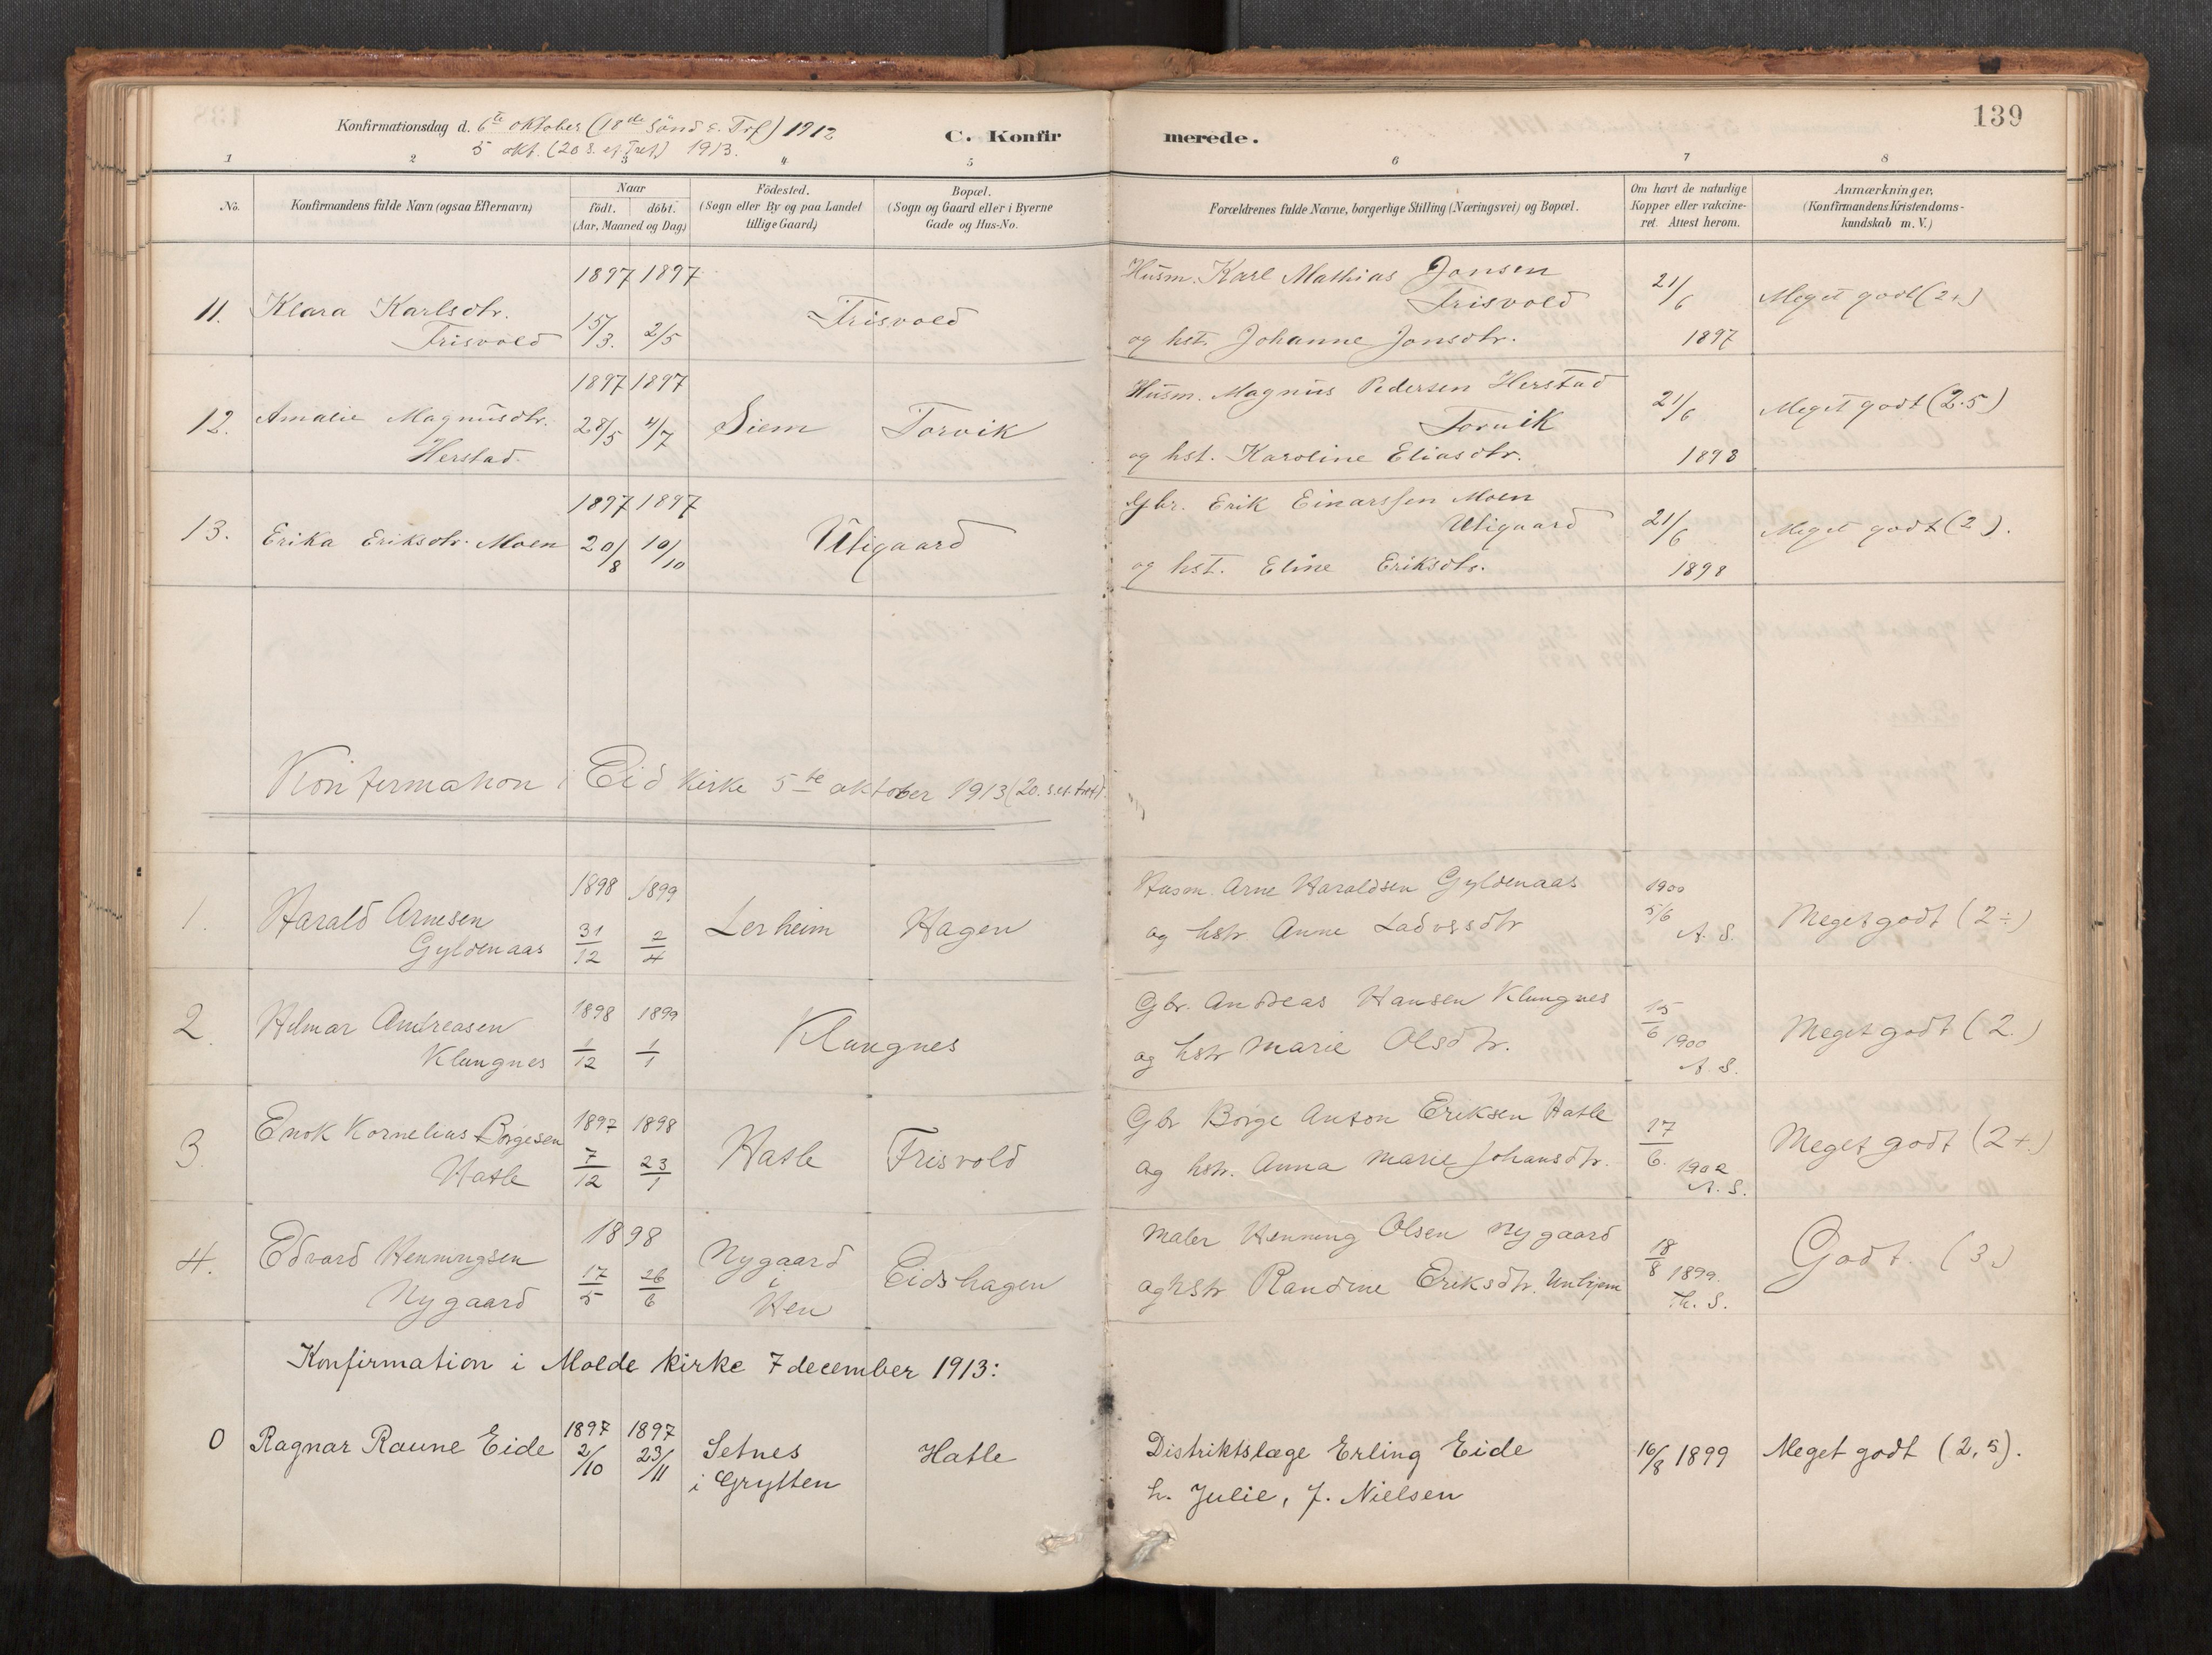 139
Konfirmationsdag d. 6te oktober (18de Sönd e. Trf) 1912
5 okt. (20 s. ef. Tref) 1913.
C. Konfir merede.
1 2 3 4 5 6 7 8
No.
Konfirmandens fulde Navn (ogsaa Efternavn)
Naar
födt. döbt.
(Aar, Maaned og Dag)
Födested.
(Sogn eller By og paa Landet
tillige Gaard)
Bopæl.
(Sogn og Gaard eller i Byerne
Gade og Hus-No.
Forældrenes fulde Navne, borgerlige Stilling (Næringsvei) og Bopæl.
Om havt de naturlige
Kopper eller vakcine-
ret. Attest herom.
Anmærkninger.
(Konfirmandens Kristendoms-
kundskab m. V.)
1897 1897 Husm. Karl Mathias Jonsen
11. Klara Karlsdtr. 15/3. 2/5 Frisvold Frisvold 21/6 Meget godt (2+)
Frisvold og hst. Johanne Jonsdtr. 1897
1897 1897 Husm. Magnus Pedersen Herstad
12. Amalie Magnusdtr. 28/5 4/7 Siem Torvik Torvik 21/6 Meget godt (2.5)
Herstad. og hst. Karoline Eliasdtr. 1898
1897 1897 Gbr. Erik Einarssen Moen
13. Erika Eriksdtr. Moen 20/8 10/10 Utigaard Utigaard 21/6 Meget godt (2).
og hst. Eline Eriksdtr. 1898
Konfirmation i Eid Kirke 5te oktober 1913 (20. s. ef. tref).
1898 1899 Husm. Arne Haraldsen Gyldenaas 1900
1. Harald Arnesen 31/12 2/4 Lerheim Hagen og hstr. Anne Ladvsdtr 5/6 A. S. Meget godt (2÷)
Gyldenaas
1898 1899 Gbr. Andreas Hansen Klungnes 15/6
2. Hilmar Andreasen 1/12 1/1 Klungnes og hstr Marie Olsdtr. 1900 Meget godt (2.)
Klungnes A. S.
1897 1898 Gbr Börge Anton Eriksen Hatle 17/6.
3. Enok Kornelius Börgesen 7/12 23/1 Hatle Frisvold og hstr. Anna Marie Johansdtr. 1902 Meget godt (2+.)
Hatle A. S.
1898 Maler Henning Olsen Nygaard 18/8
4. Edvard Henningsen 17/5 26/6 Nygaard i Hen Eidshagen og hstr Randine Eriksdtr. Unhjem 1899. Godt. (3)
Nygaard Th. S.
Konfirmation i Molde kirke 7 december 1913:
1897 1897
0 Ragnar Raune Eide 2/10 23/11 Setnes Hatle Distriktslæge Erling Eide 16/8 1899 Meget godt (2,5).
i Grytten h. Julie, f. Nielsen